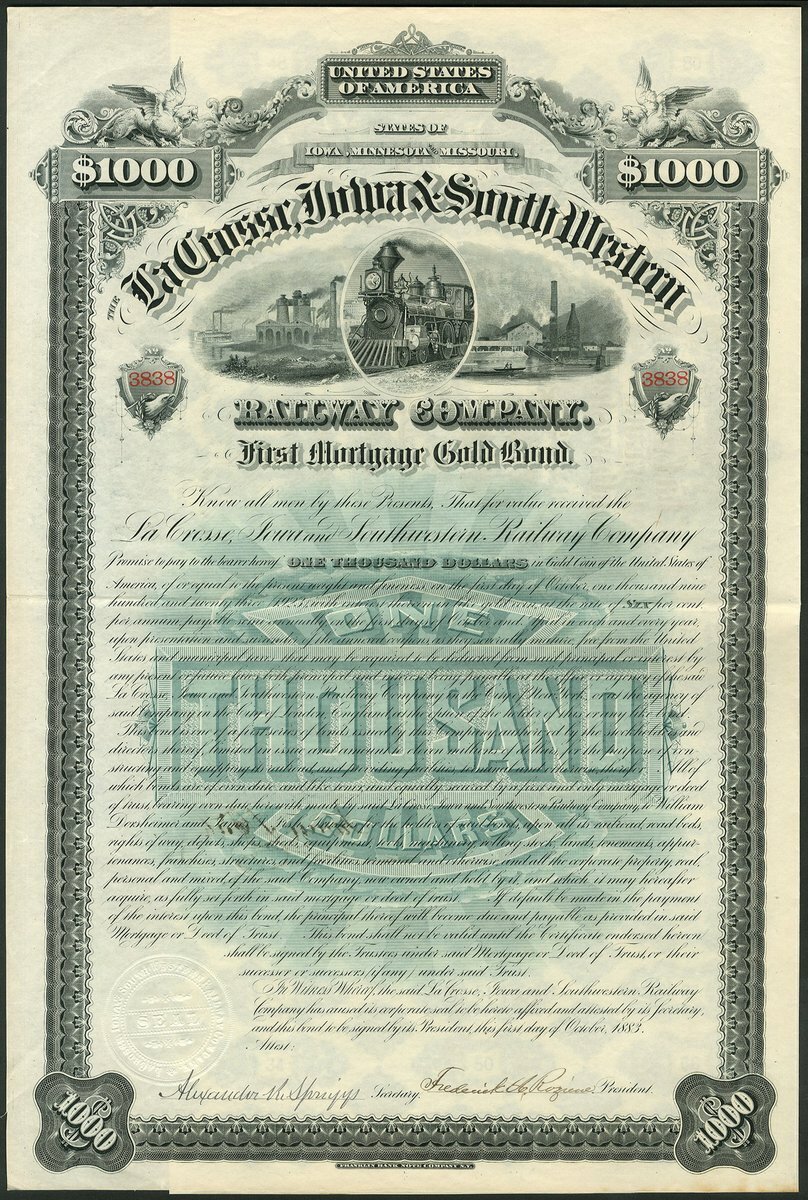 UNITED STATES
OF AMERICA
STATES OF
IOWA, MINNESOTA AND MISSOURI.
$1000
$1000
THE La Crosse, Iowa & South Western
3838
3838
RAILWAY COMPANY.
First Mortgage Gold Bond.
Know all men by these Presents, That for value received the
La Crosse, Iowa and Southwestern Railway Company
Promise to pay to the bearer hereof ONE THOUSAND DOLLARS in Gold Coin of the United States of
America, of or equal to the present weight and fineness, on the first day of October, one thousand nine
hundred and twenty three, 1923, with interest thereon in like gold coin at the rate of SIX per cent.
per annum, payable on the first days of and October in each and every year,
upon presentation and surrender of the annexed coupons, as they severally mature, free from the United
States and municipal taxes
by any present or future
La Crosse, Iowa and Southwestern Railway Company in the City of New York, or at the agency of
said Company in the City of London, England, at the option of the holder
This bond is one of a series
directors thereof, limited in issue and amount to dollars, for the purpose of con-
structing and equipping its railroad All of
which bonds are of even date and like tenor, and equally secured by a first and only mortgage or deed
of trust, bearing even date herewith, made by said La Crosse, Iowa and Southwestern Railway Company, to William
Dorsheimer and upon all its railroad, road beds,
rights of way, depots, shops, tools, equipment, rolling stock, lands, tenements, appur-
tenances, franchises, structures, and facilities, terminal and otherwise, and all the corporate property, real,
personal and mixed, of the said Company, now owned and held by it, and which it may hereafter
acquire, as fully set forth in said mortgage or deed of trust. If default be made in the payment
of the interest upon this bond, the principal thereof will become due and payable as provided in said
Mortgage or Deed of Trust. This bond shall not be valid until the Certificate endorsed hereon
shall be signed by the Trustees under said Mortgage or Deed of Trust, or their
successor or successors (if any) under said Trust.
In Witness Whereof, the said La Crosse, Iowa and Southwestern Railway
Company has caused its corporate seal to be hereto affixed and attested by its Secretary,
and this bond to be signed by its President, this first day of October, 1883.
Attest:
ONE
THOUSAND
DOLLARS
SEAL
Alexander R. Spriggs Secretary. Frederick A. President.
1000
1000
FRANKLIN BANK NOTE COMPANY N.Y.